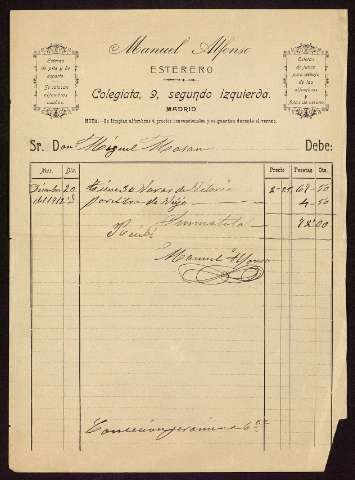 Manuel Alfonso
ESTERERO
Colegiata, 9, segundo izquierda.
MADRID
Esteras de pita y de esparto.
Se colocan alfombras usadas.
Esteras de junco para debajo de las alfombras y fuera de verano.
NOTA.—Se limpian alfombras á precios convencionales y se guardan durante el verano.
Sr. Don Miguel Mosan Debe:
Mes. Día. Precio Pesetas Cts.
Diciembre 20 Tiene 30 varas de 2-25 67-50
del 1912 por de viejo 4-50
Suma total 72'00
Recibí
Manuel Alfonso
Concepción Jerónima 6